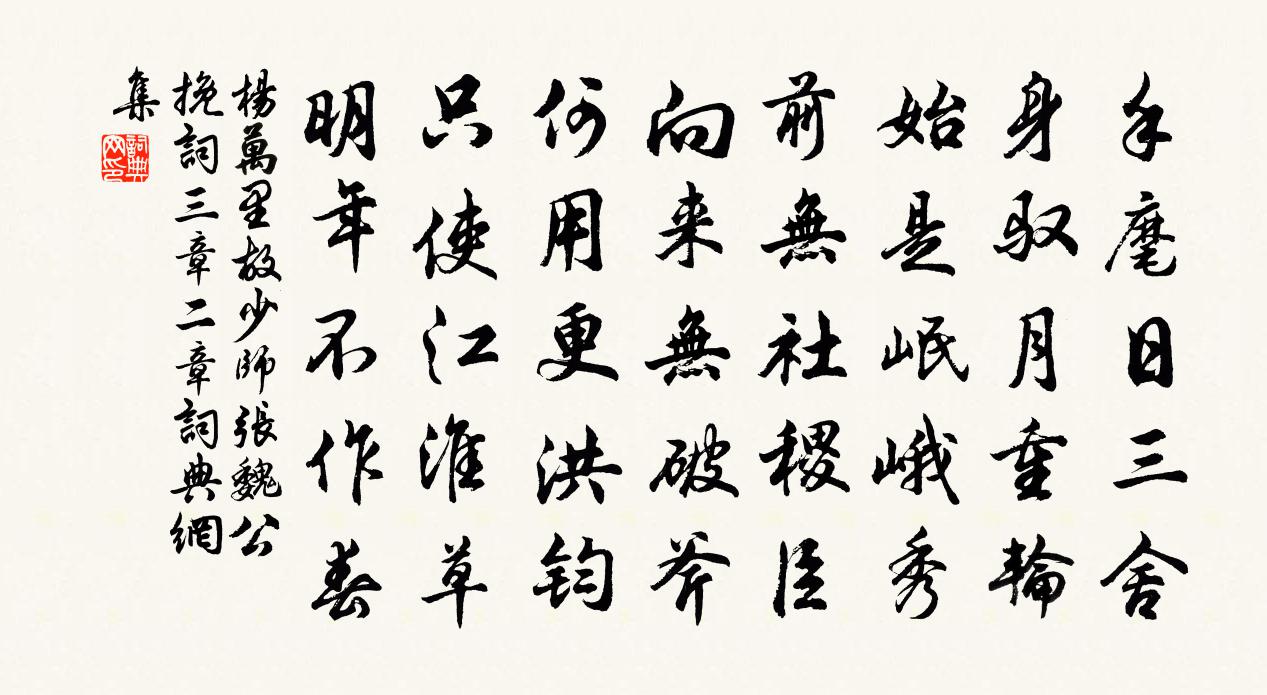 手麾日三舍
身驭月重輪
始是岷峨秀
前無社稷臣
向来無破斧
何用更洪鈞
只使江淮草
明年不作春
楊萬里故少師張魏公
挽詞三章二章詞典網
集
詞典
网印